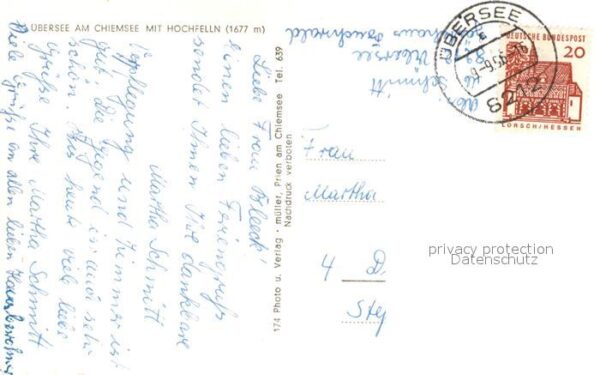 ÜBERSEE AM CHIEMSEE MIT HOCHFELLN (1677 m)
Liebe Frau Bleeck!
Einen lieben Feriengruß
sendet Ihnen Ihre dankbare
Martha Schmitt
Verpflegung und Zimmer ist
gut die Gegend ist auch sehr
schön. Für heute viele liebe
Grüße Ihre Martha Schmitt
Viele Grüße an allen lieben Hausbewohner
174 Photo u. Verlag · müller, Prien am Chiemsee Tel. 639
Nachdruck verboten
Abs.
Schmitt
Übersee
ÜBERSEE
8212
DEUTSCHE BUNDESPOST
20
LORSCH/HESSEN
Frau
Martha
4 D
Stej
privacy protection
Datenschutz